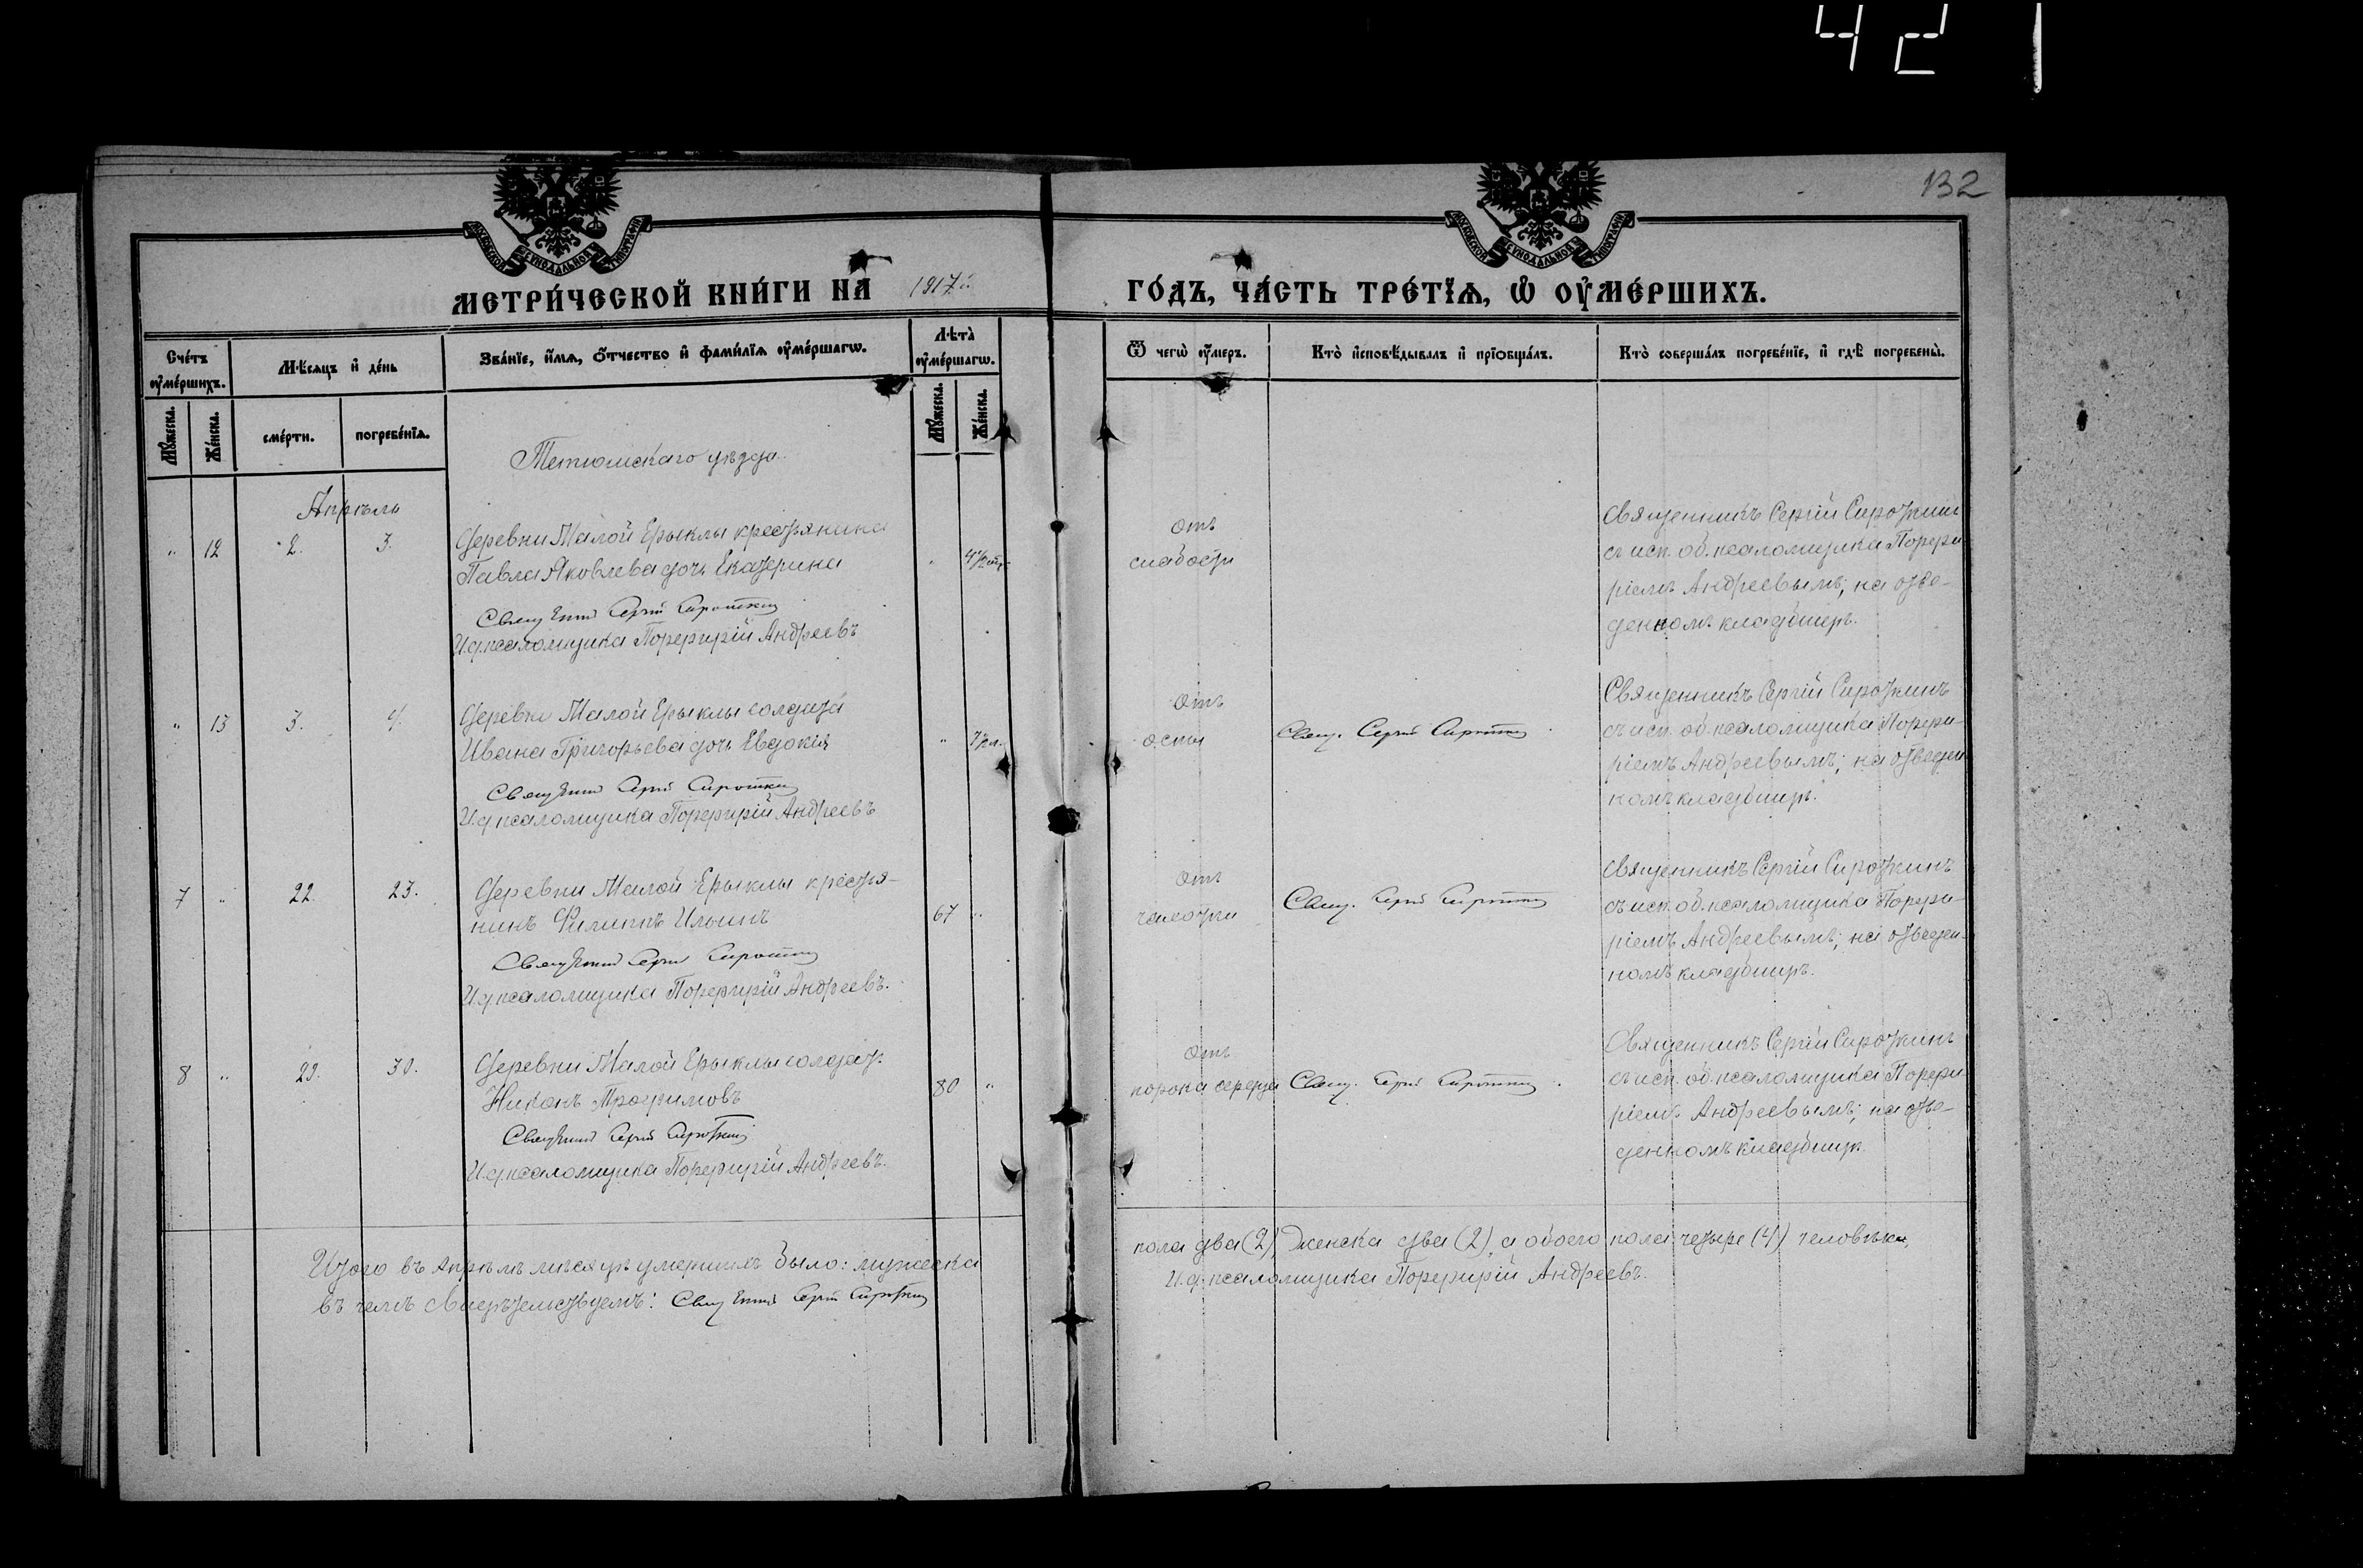 421
132
МОСКОВСКОЙ СѴНОДАЛЬНОЙ ТИПОГРАФІИ
МОСКОВСКОЙ СѴНОДАЛЬНОЙ ТИПОГРАФІИ
МЕТРИ́ЧЕСКОЙ КНИ́ГИ НА 1917 й ГО́ДЪ, ЧА́СТЬ ТРЕ́ТЇѦ, Ѡ҆ ОУ҆МЕ́РШИХЪ.
Сче́тъ оу҆ме́ршихъ.
Мꙋ́жеска.
Же́нска.
Мѣ́сяцъ и҆ де́нь
сме́рти.
погребе́нїѧ.
Зва́нїе, и҆́мѧ, ѻ҆́тчество и҆ фами́лїѧ оу҆ме́ршагѡ.
Лѣ́та̀ оу҆ме́ршагѡ.
Мꙋ́жеска.
Же́нска.
Ѿ чегѡ̀ оу҆́меръ.
Кто̀ и҆сповѣ́дывалъ и҆ прїѡбща́лъ.
Кто̀ соверша́лъ погребе́нїе, и҆ гдѣ̀ погребены̀.
Тетюшскаго уѣзда
Апрѣль
" 12 2. 3.
Деревни Малой Ерыклы крестьянина
Павла Яковлева дочь Екатерина
Священникъ Сергій Сироткинъ
И.д. псаломщика Порфирій Андреевъ
отъ
слабости
Священникъ Сергій Сироткинъ
съ исп. об. псаломщика Порфи
ріемъ Андреевымъ; на отве-
денномъ кладбищѣ.
" 13 3. 4.
Деревни Малой Ерыклы солдата
Ивана Григорьева дочь Евдокія
Священникъ Сергій Сироткинъ
И.д. псаломщика Порфирій Андреевъ
отъ
оспы
Свящ. Сергій Сироткинъ
Священникъ Сергій Сироткинъ
съ исп. об. псаломщика Порфи-
ріемъ Андреевымъ; на отведен
номъ кладбищѣ.
7 " 22. 23.
Деревни Малой Ерыклы крестья-
нинъ Филиппъ Ильинъ
67 "
Священникъ Сергій Сироткинъ
И.д. псаломщика Порфирій Андреевъ.
отъ
чахотки
Свящ. Сергій Сироткинъ
Священникъ Сергій Сироткинъ
съ исп. об. псаломщика Порфи-
ріемъ Андреевымъ; на отведен-
номъ кладбищѣ.
8 " 29. 30.
Деревни Малой Ерыклы солдат.
Никонъ Трофимовъ
80 "
Священникъ Сергій Сироткинъ
И.д. псаломщика Порфирій Андреевъ.
отъ
порока сердца
Свящ. Сергій Сироткинъ
Священникъ Сергій Сироткинъ
съ исп. об. псаломщика Порфи
ріемъ Андреевымъ; на отве-
денномъ кладбищѣ.
Итого въ Апрѣлѣ мѣсяцѣ умершихъ было: мужеска
пола два (2), женска два (2), а обоего пола четыре (4) человѣка,
въ чемъ свидѣтельствуемъ: Священникъ Сергій Сироткинъ
И.д. псаломщика Порфирій Андреевъ.